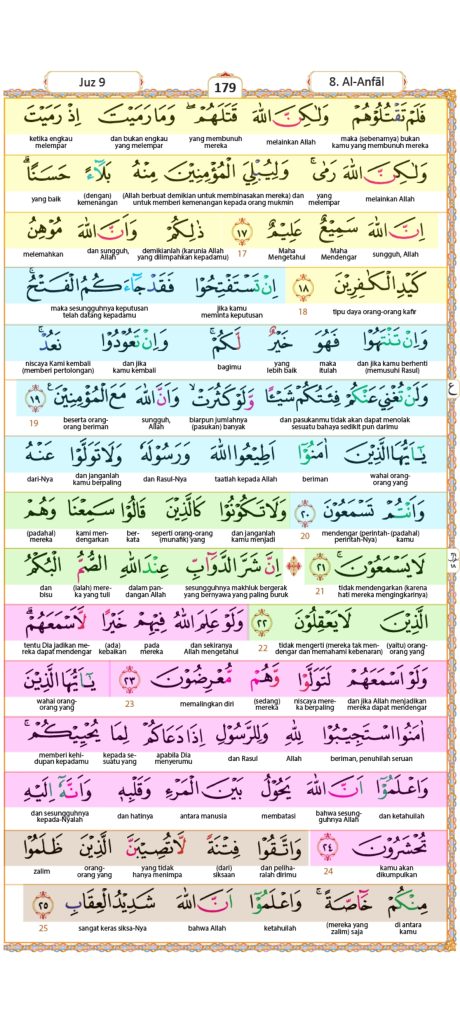 Juz 9
179
8. Al-Anfāl
فَلَمْ تَقْتُلُوْهُمْ وَلٰكِنَّ اللّٰهَ قَتَلَهُمْۖ وَمَا رَمَيْتَ اِذْ رَمَيْتَ
maka (sebenarnya) bukan kamu yang membunuh mereka melainkan Allah yang membunuh mereka dan bukan engkau yang melempar ketika engkau melempar
وَلٰكِنَّ اللّٰهَ رَمٰىۚ وَلِيُبْلِيَ الْمُؤْمِنِيْنَ مِنْهُ بَلَاۤءً حَسَنًاۗ
melainkan Allah yang melempar (Allah berbuat demikian untuk membinasakan mereka) dan untuk memberi kemenangan kepada orang mukmin (dengan) kemenangan yang baik
اِنَّ اللّٰهَ سَمِيْعٌ عَلِيْمٌ ۝١٧ ذٰلِكُمْ وَاَنَّ اللّٰهَ مُوْهِنُ
sungguh, Allah Maha Mendengar Maha Mengetahui 17 demikianlah (karunia Allah yang dilimpahkan kepadamu) dan sungguh, Allah melemahkan
كَيْدِ الْكٰفِرِيْنَ ۝١٨ اِنْ تَسْتَفْتِحُوْا فَقَدْ جَاۤءَكُمُ الْفَتْحُۚ
tipu daya orang-orang kafir 18 jika kamu meminta keputusan maka sesungguhnya keputusan telah datang kepadamu
وَاِنْ تَنْتَهُوْا فَهُوَ خَيْرٌ لَّكُمْۚ وَاِنْ تَعُوْدُوْا نَعُدْۚ
dan jika kamu berhenti (memusuhi Rasul) maka itulah yang lebih baik bagimu dan jika kamu kembali niscaya Kami kembali (memberi pertolongan)
وَلَنْ تُغْنِيَ عَنْكُمْ فِئَتُكُمْ شَيْـًٔا وَّلَوْ كَثُرَتْۙ وَاَنَّ اللّٰهَ مَعَ الْمُؤْمِنِيْنَ ۝١٩
dan pasukanmu tidak akan dapat menolak sesuatu bahaya sedikit pun darimu biarpun jumlahnya (pasukan) banyak sungguh, Allah beserta orang-orang beriman 19
يٰٓاَيُّهَا الَّذِيْنَ اٰمَنُوْٓا اَطِيْعُوا اللّٰهَ وَرَسُوْلَهٗ وَلَا تَوَلَّوْا عَنْهُ
wahai orang-orang yang beriman taatlah kepada Allah dan Rasul-Nya dan janganlah kamu berpaling dari-Nya
وَاَنْتُمْ تَسْمَعُوْنَ ۝٢٠ وَلَا تَكُوْنُوْا كَالَّذِيْنَ قَالُوْا سَمِعْنَا وَهُمْ
padahal) kamu mendengar (perintah- perintah-Nya) 20 dan janganlah kamu menjadi seperti orang-orang (munafik) yang ber-kata kami men-dengarkan (padahal) mereka
لَا يَسْمَعُوْنَۚ ۝٢١ اِنَّ شَرَّ الدَّوَاۤبِّ عِنْدَ اللّٰهِ الصُّمُّ الْبُكْمُ
tidak mendengarkan (karena hati mereka mengingkarinya) 21 sesungguhnya makhluk bergerak yang bernyawa yang paling buruk dalam pan-dangan Allah (ialah) mere-ka yang tuli dan bisu
الَّذِيْنَ لَا يَعْقِلُوْنَ ۝٢٢ وَلَوْ عَلِمَ اللّٰهُ فِيْهِمْ خَيْرًا لَّاَسْمَعَهُمْۗ
(yaitu) orang-orang yang tidak mengerti (mereka tak men-dengar dan memahami kebenaran) 22 dan sekiranya Allah mengetahui pada mereka (ada) kebaikan tentu Dia jadikan me-reka dapat mendengar
وَلَوْ اَسْمَعَهُمْ لَتَوَلَّوْا وَّهُمْ مُّعْرِضُوْنَ ۝٢٣ يٰٓاَيُّهَا الَّذِيْنَ
dan jika Allah menjadikan mereka dapat mendengar niscaya mere-ka berpaling (sedang) mereka memalingkan diri 23 wahai orang-orang yang
اٰمَنُوا اسْتَجِيْبُوْا لِلّٰهِ وَلِلرَّسُوْلِ اِذَا دَعَاكُمْ لِمَا يُحْيِيْكُمْۚ
beriman, penuhilah seruan Allah dan Rasul apabila Dia menyerumu kepada se-suatu yang memberi kehi-dupan kepadamu
وَاعْلَمُوْٓا اَنَّ اللّٰهَ يَحُوْلُ بَيْنَ الْمَرْءِ وَقَلْبِهٖ وَاَنَّهٗٓ اِلَيْهِ
dan ketahuilah bahwa sesung-guhnya Allah membatasi antara manusia dan hatinya dan sesungguhnya kepada-Nyalah
تُحْشَرُوْنَ ۝٢٤ وَاتَّقُوْا فِتْنَةً لَّا تُصِيْبَنَّ الَّذِيْنَ ظَلَمُوْا
kamu akan dikumpulkan 24 dan peliha-ralah dirimu (dari) siksaan yang tidak hanya menimpa orang-orang yang zalim
مِنْكُمْ خَاۤصَّةًۚ وَاعْلَمُوْٓا اَنَّ اللّٰهَ شَدِيْدُ الْعِقَابِ ۝٢٥
di antara kamu (mereka yang zalim) saja ketahuilah bahwa Allah sangat keras siksa-Nya 25
ع